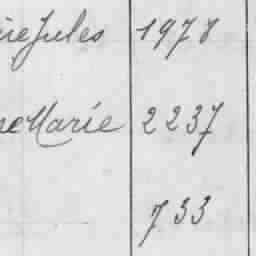 Jules 1978
Marie 2237
733